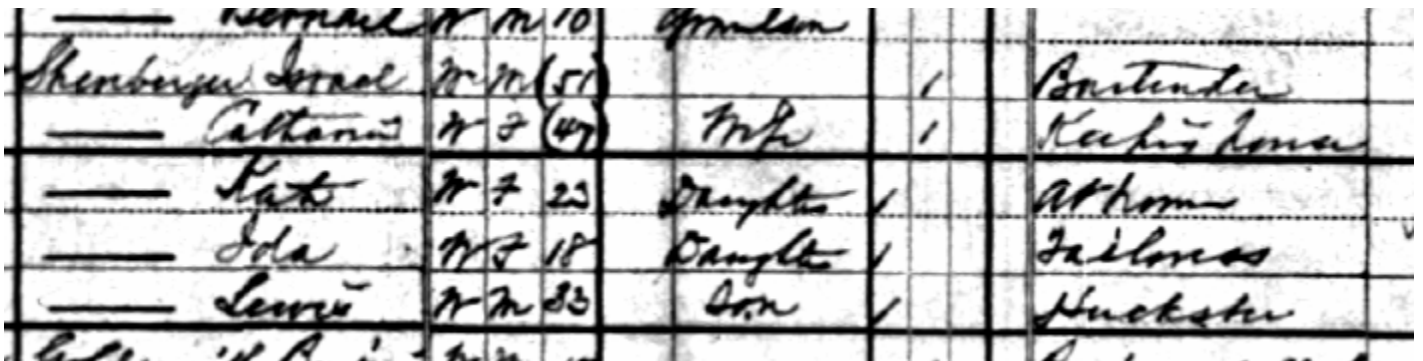 Bernard W M 10 Grandson
Shenberger Israel W M (51) 1 Bartender
— Catharine W F (47) Wife 1 Keeping house
— Kate W F 23 Daughter 1 At home
— Ida W F 18 Daughter 1 Tailoress
— Lewis W M 23 Son 1 Huckster